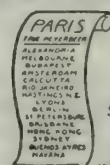 PARIS
ALEXANDRIA
MELBOURNE
BUDAPEST
AMSTERDAM
CALCUTTA
RIO JANEIRO
HASTINGS N.Z.
LYONS
BERLIN
ST PETERSBURG
BRISBANE
HONG KONG
SYDNEY
BUENOS AYRES
HAVANA